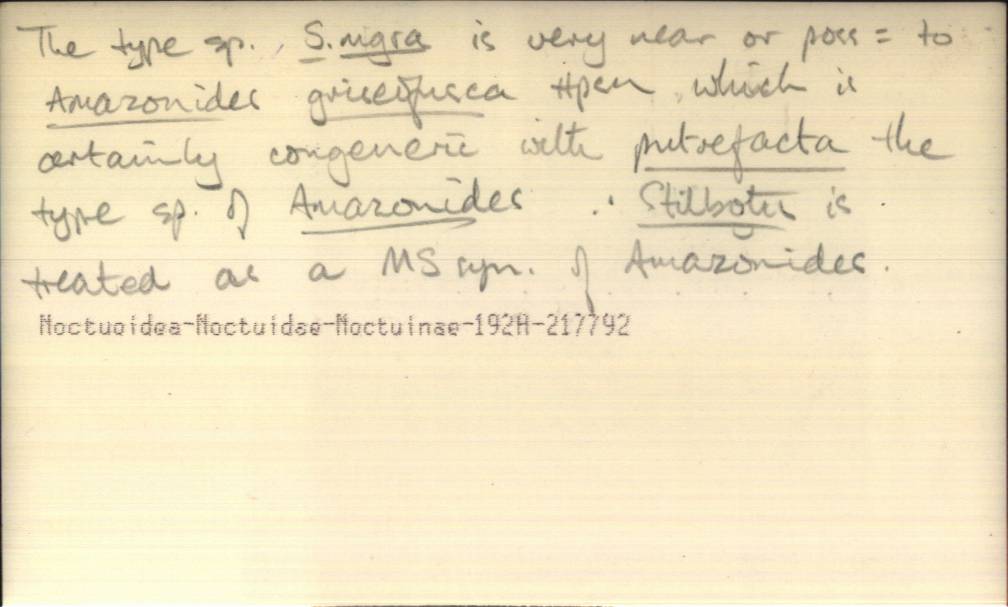 The type sp., S. nigra is very near or poss = to
Amazonides griseofusca Hpsn, which is
certainly congeneric with putrefacta the
type sp. of Amazonides ∴ Stilbotis is
treated as a MS syn. of Amazonides.
Noctuoidea-Noctuidae-Noctuinae-192A-217792